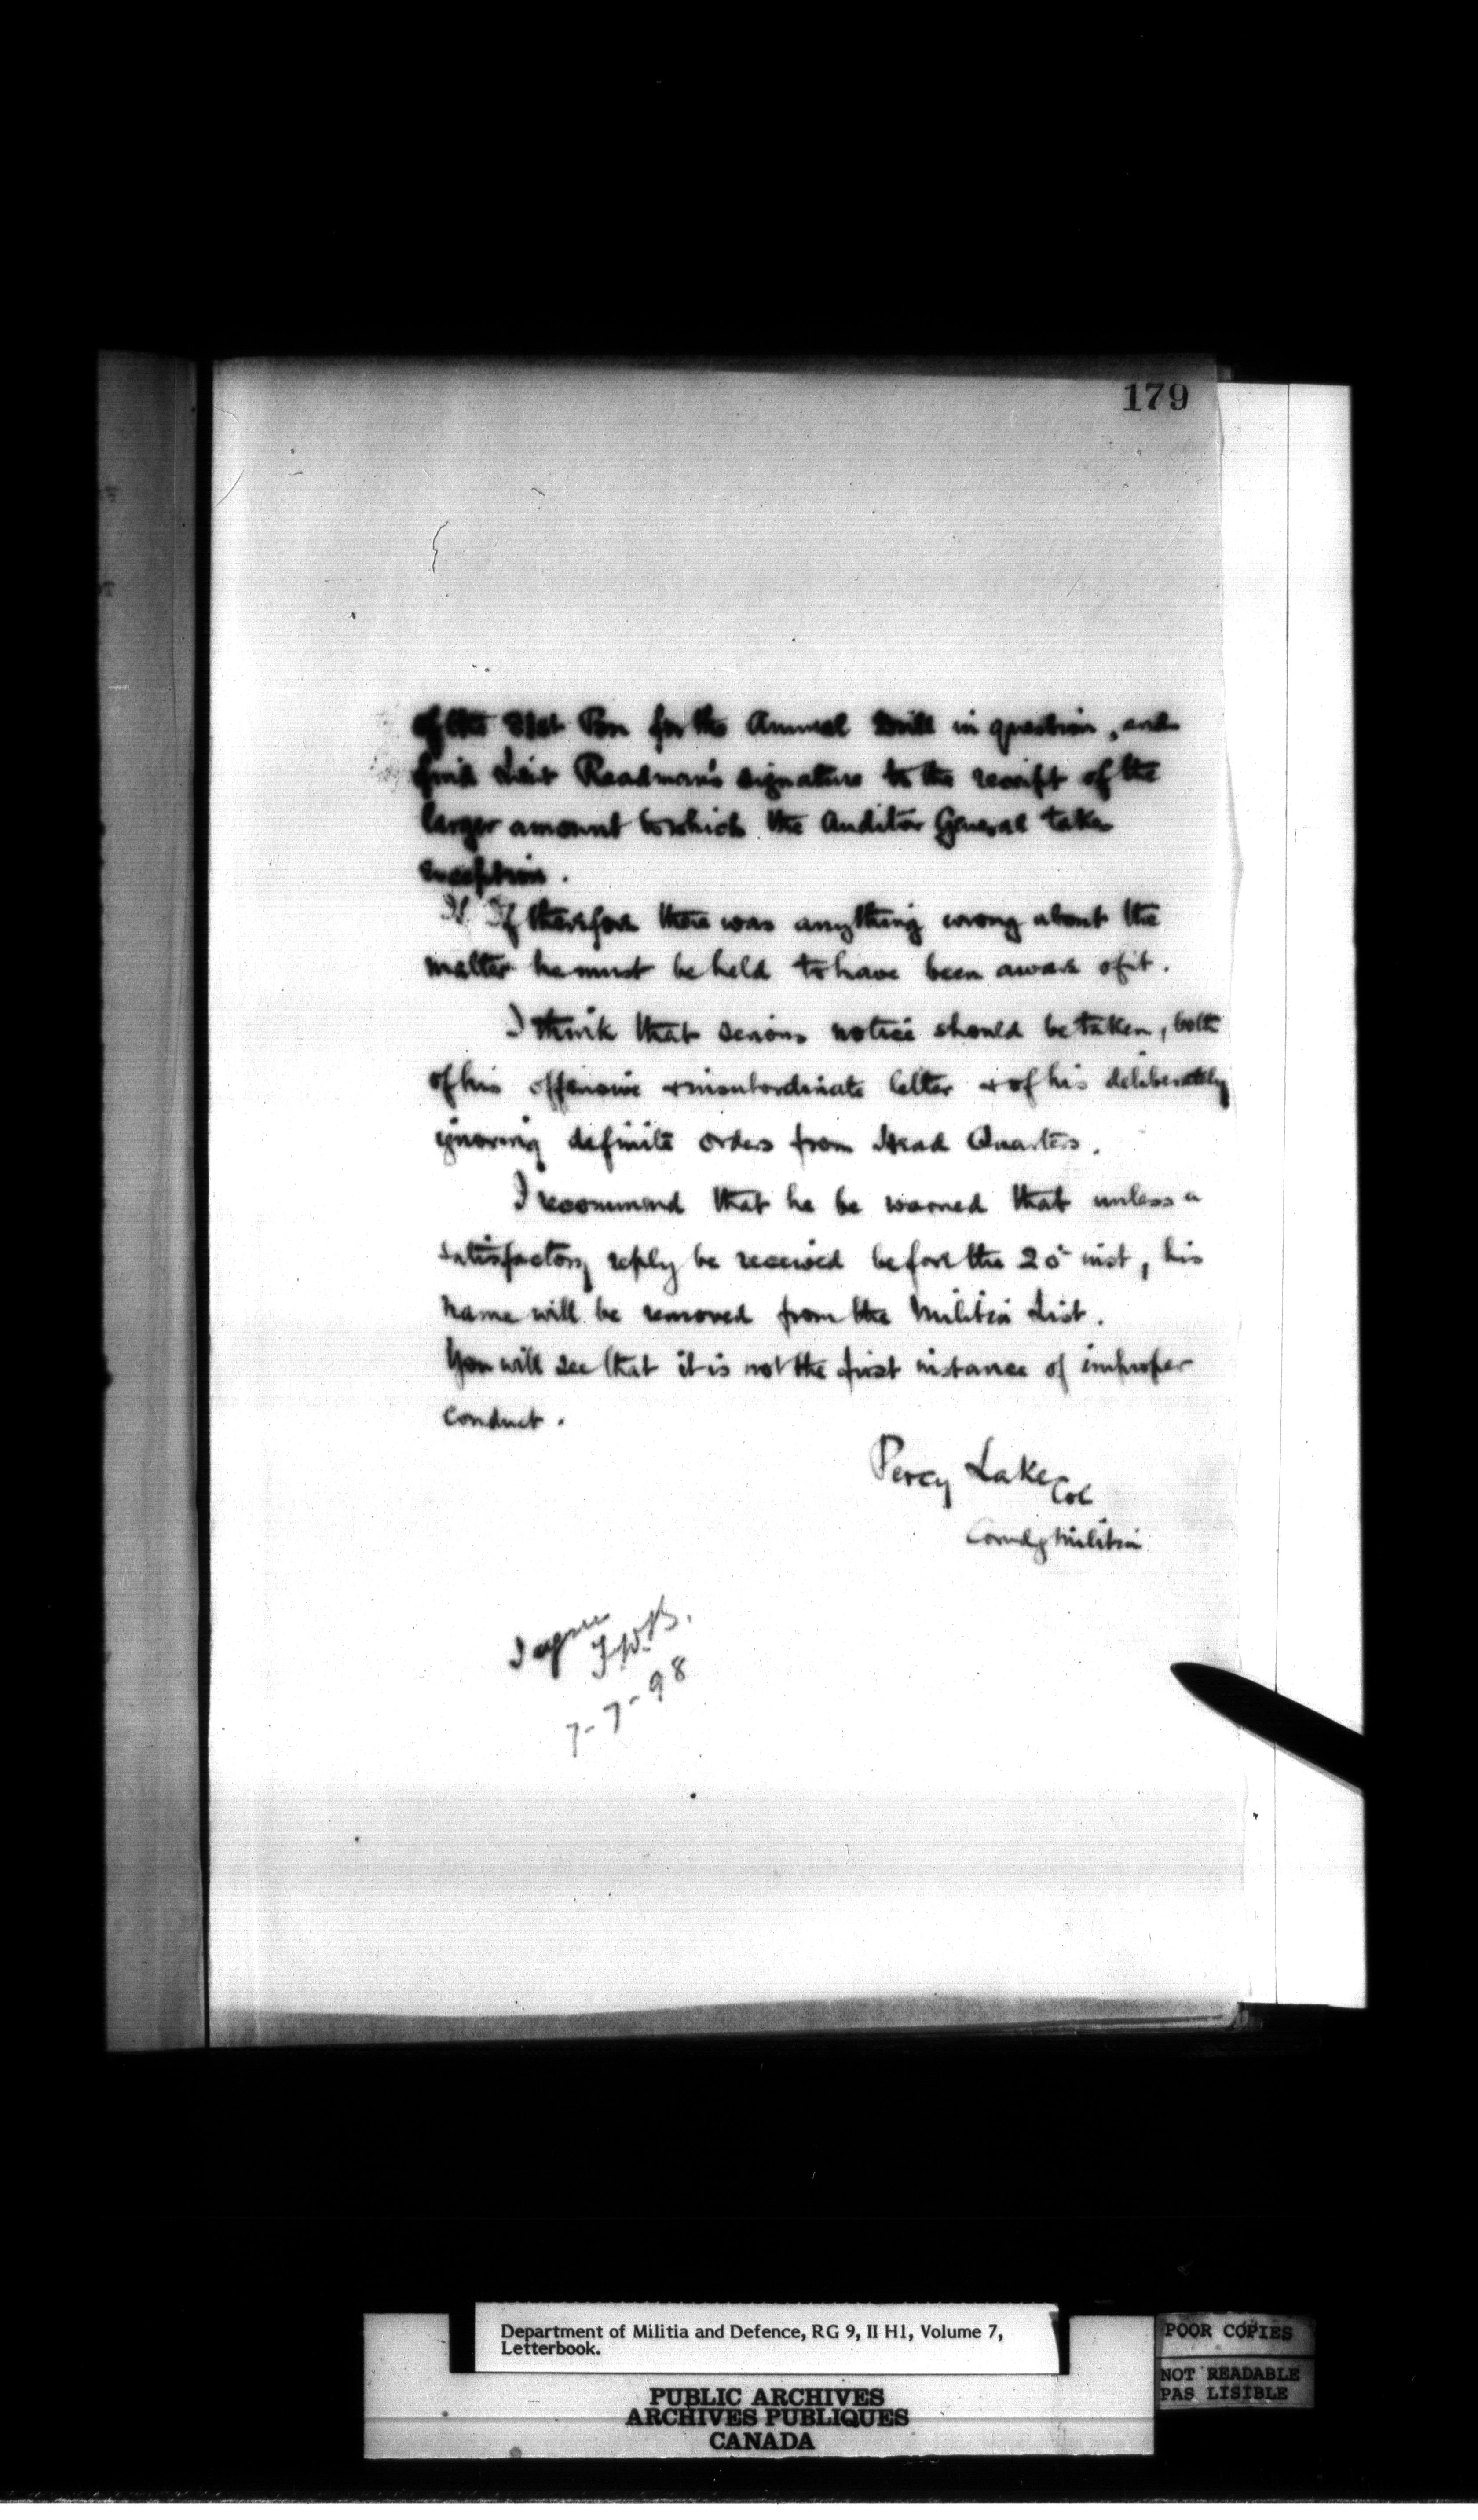 179
of the 31st Bn for the Annual Drill in question, and
find Lieut Readman's signature to the receipt of the
larger amount to which the Auditor General takes
exception.
If therefore there was anything wrong about the
matter he must be held to have been aware of it.
I think that serious notice should be taken, both
of his offensive & insubordinate letter & of his deliberately
ignoring definite orders from Head Quarters.
I recommend that he be warned that unless a
satisfactory reply be received before the 20th inst, his
name will be removed from the Militia List.
You will see that it is not the first instance of improper
conduct.
Percy Lake Col
Comdg Militia
I agree
F.W.B.
7-7-98
Department of Militia and Defence, RG 9, II H1, Volume 7,
Letterbook.
POOR COPIES
NOT READABLE
PAS LISIBLE
PUBLIC ARCHIVES
ARCHIVES PUBLIQUES
CANADA